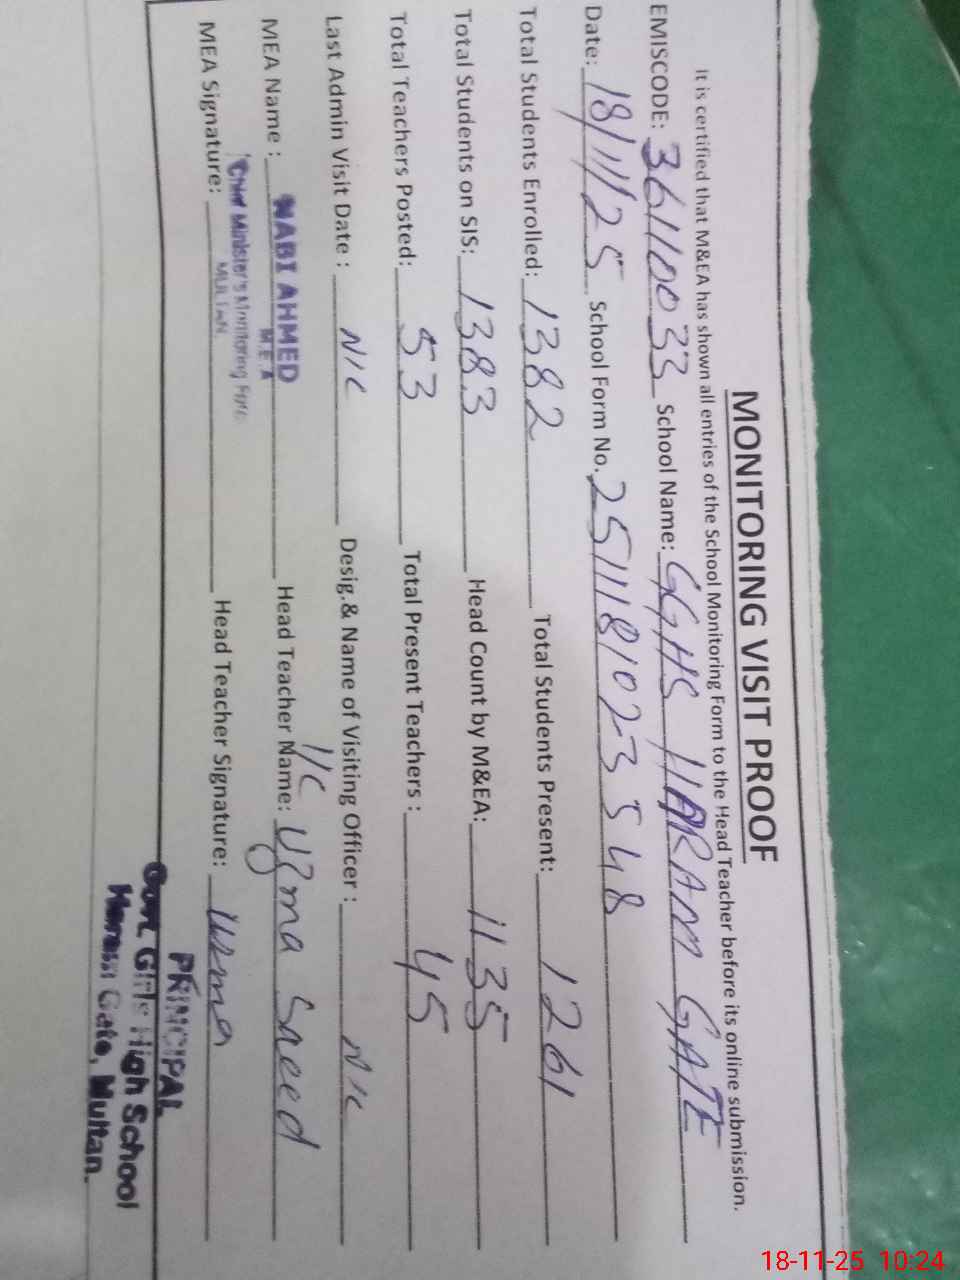 MONITORING VISIT PROOF
It is certified that M&EA has shown all entries of the School Monitoring Form to the Head Teacher before its online submission.
EMISCODE: 36110033 School Name: GGHS HARAM GATE
Date: 18/11/25 School Form No. 2511181023548
Total Students Enrolled: 1382 Total Students Present: 1261
Total Students on SIS: 1383 Head Count by M&EA: 1135
Total Teachers Posted: 53 Total Present Teachers : 45
Last Admin Visit Date : N/C Desig.& Name of Visiting Officer : N/C
MEA Name : NABI AHMED Head Teacher Name: I/C Uzma Saeed
M.E.A
Chief Minister's Monitoring Force
MULTAN.
MEA Signature: Head Teacher Signature: Uzma
PRINCIPAL
Govt. Girls High School
Haram Gate, Multan.
18-11-25 10:24